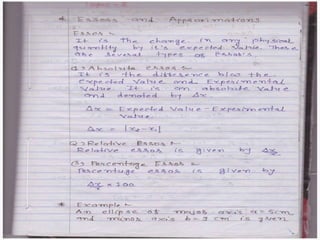 * Errors and Approximations
Errors :-
It is the change in any physical
quantity by it's expected value. These
are several types of errors.
(1) Absolute errors :-
It is the difference b/w the
expected value and Experimental
value. It is an absolute value
and denoted by Δx
Δx = Expected value - Experimental
value
Δx =
(2) Relative Error :-
Relative error is given by
(3) Percentage Error :-
Percentage error is given by
x 100
* Example :-
An ellipse of major axis a = 5cm
and minor axis b = 3 cm is given